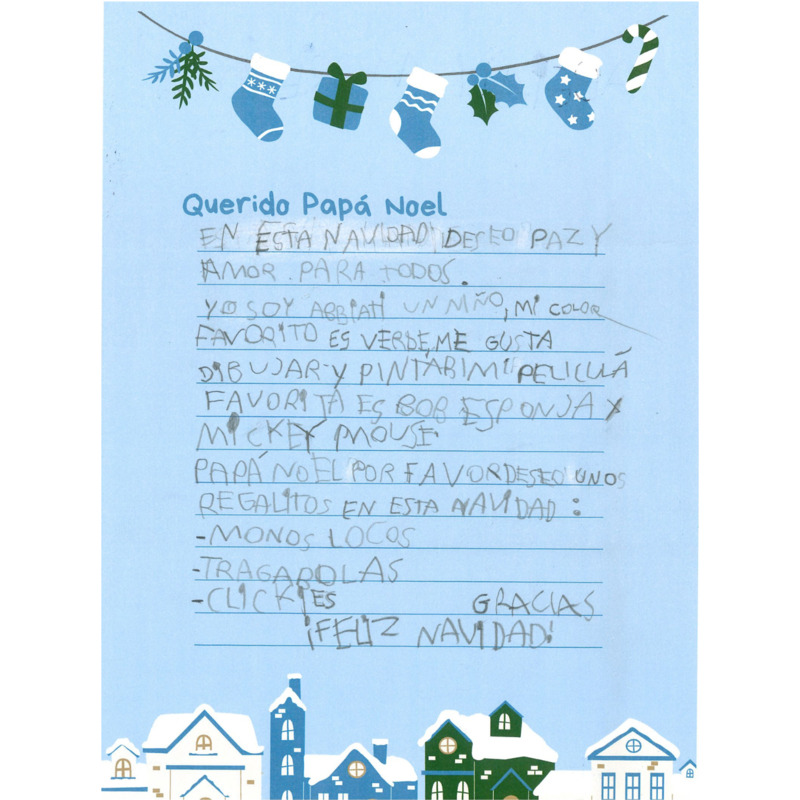 Querido Papá Noel
EN ESTA NAVIDAD, DESEO PAZ Y
AMOR PARA TODOS.
YO SOY ABBIATI UN NIÑO, MI COLOR
FAVORITO ES VERDE, ME GUSTA
DIBUJAR Y PINTAR MI PELICULÁ
FAVORITA ES BOB ESPONJA Y
MICKEY MOUSE
PAPÁ NOEL POR FAVOR DESEO UNOS
REGALITOS EN ESTA NAVIDAD:
-MONOS LOCOS
-TRAGABOLAS
-CLICKIES GRACIAS
¡FELIZ NAVIDAD!